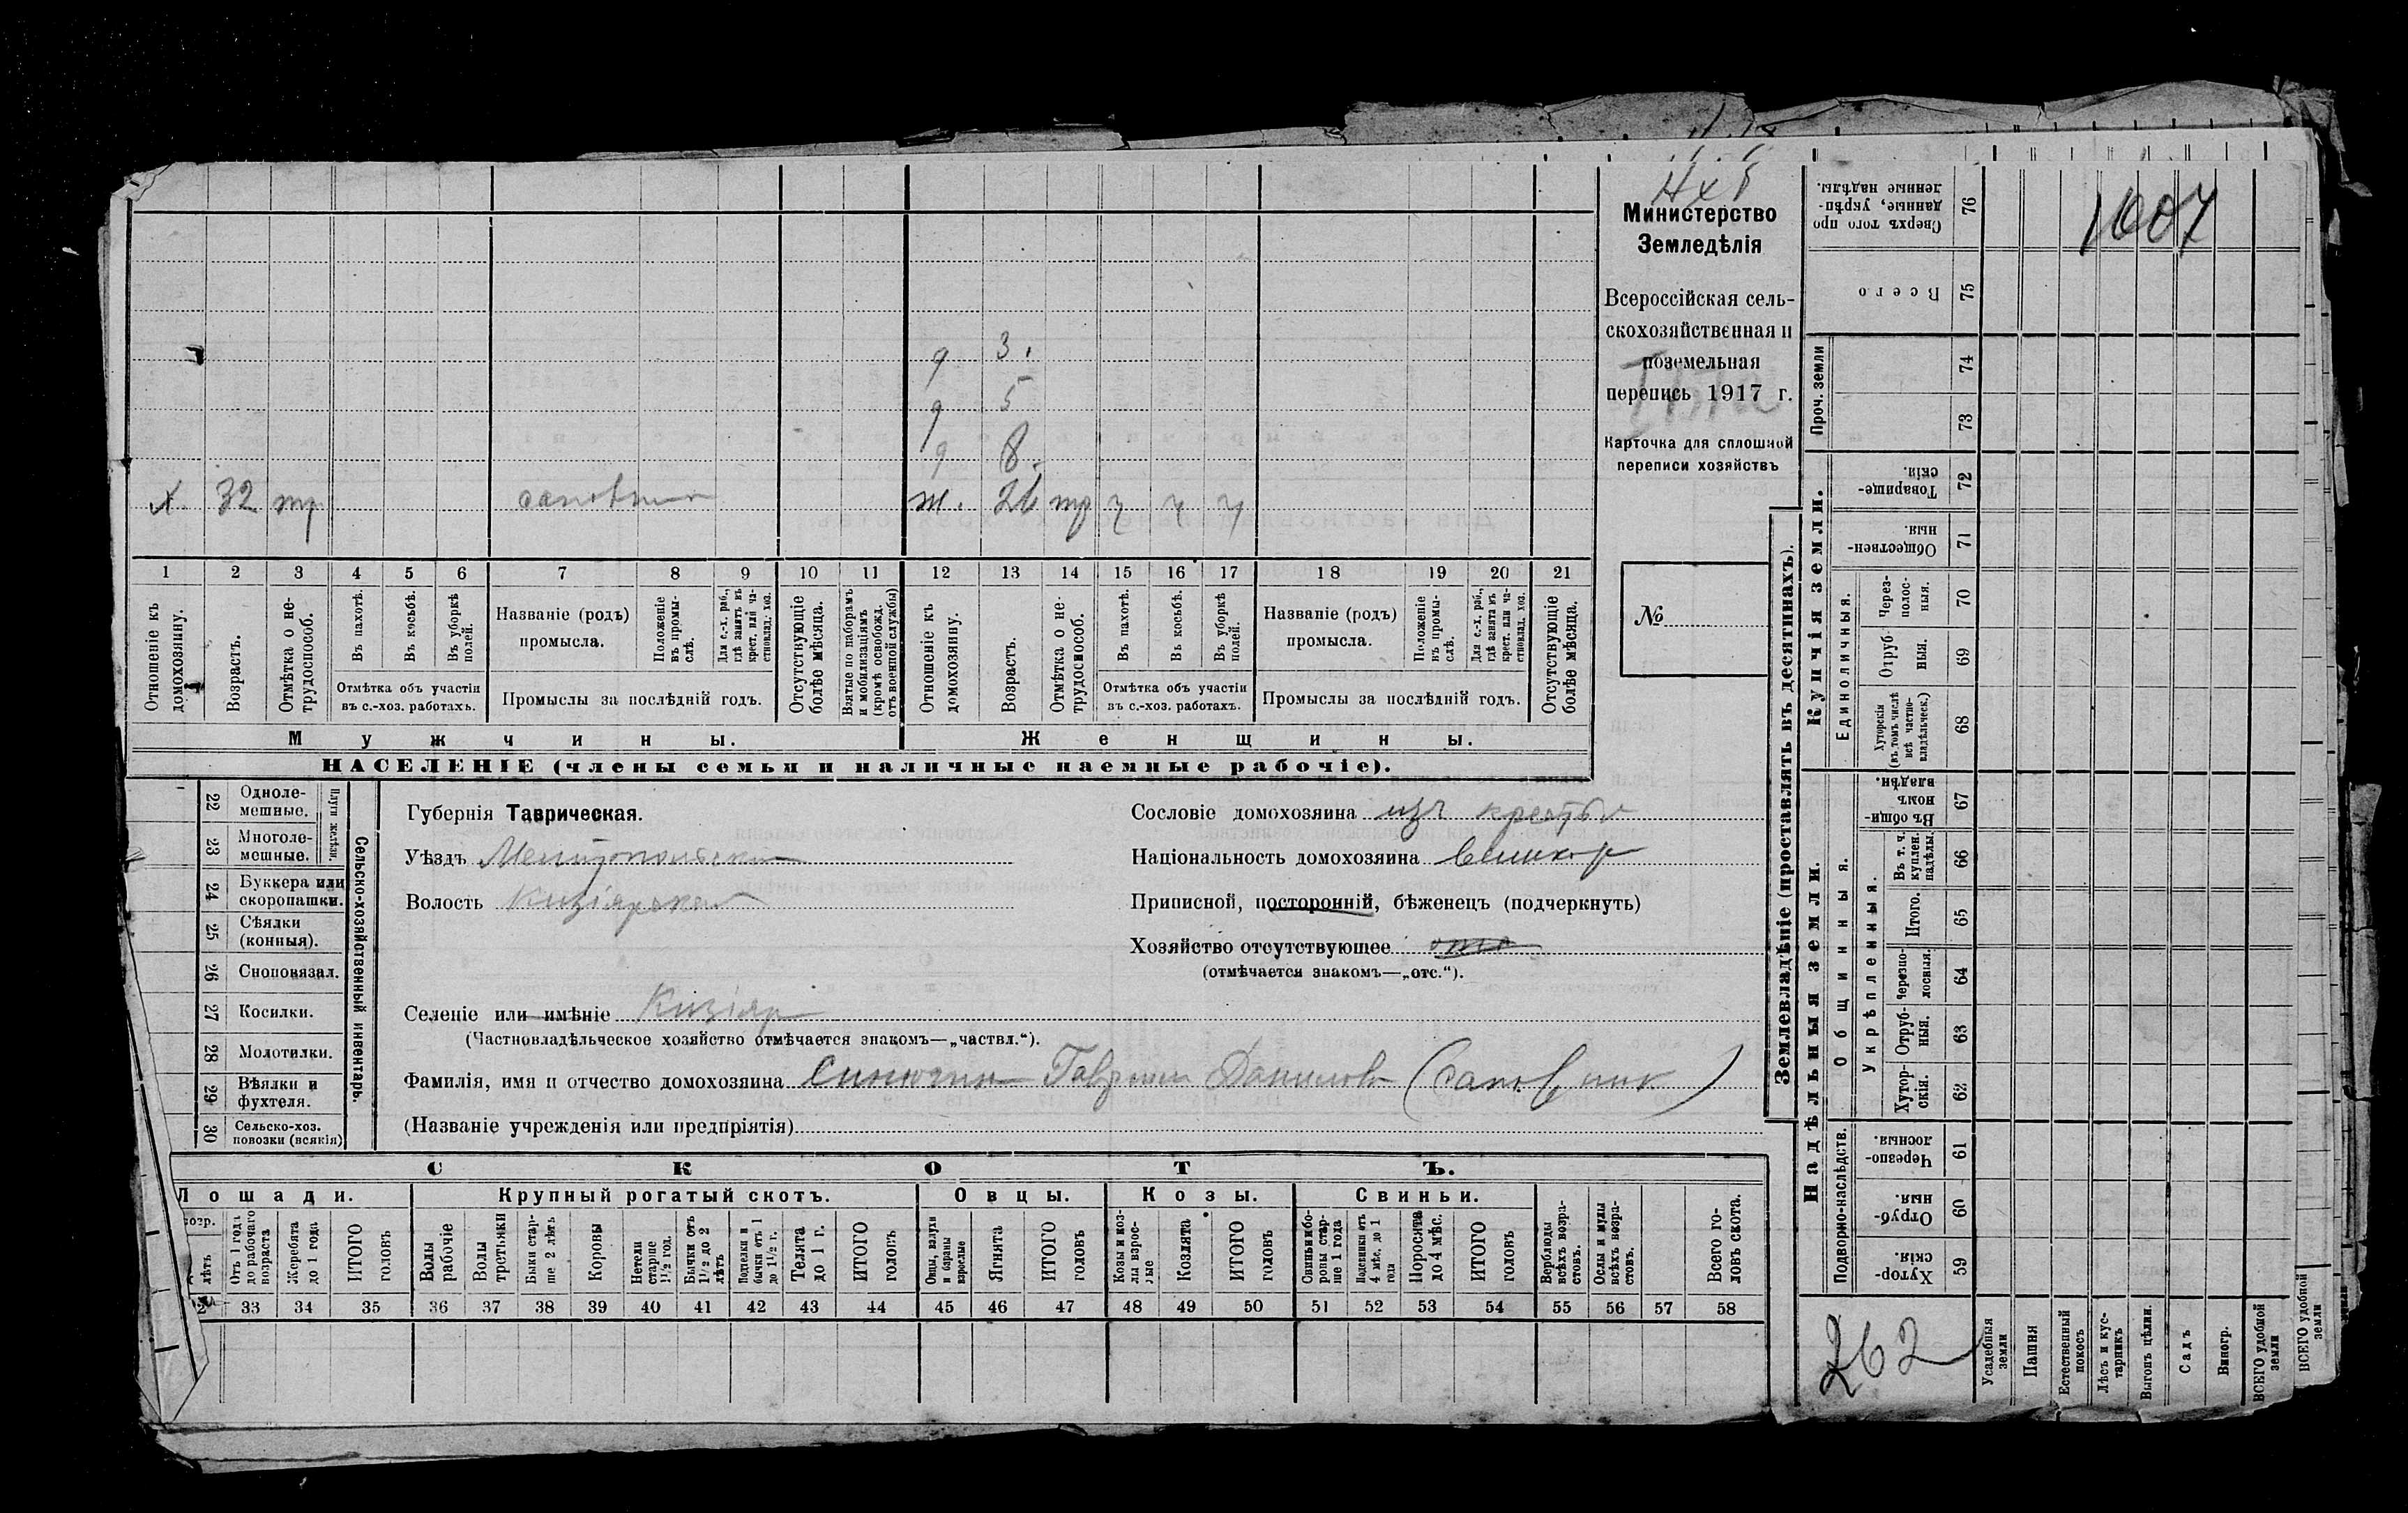 Министерство
Земледѣлія
Всероссійская сель-
скохозяйственная и
поземельная
перепись 1917 г.
Карточка для сплошной
переписи хозяйствъ
№
1607
д 3.
д 5
д 8.
х. 32 тр сапожник ж. 26 тр ч ч ч
1 2 3 4 5 6 7 8 9 10 11 12 13 14 15 16 17 18 19 20 21
Отношеніе къ домохозяину.
Возрастъ.
Отмѣтка о не-трудоспособ.
Въ пахотѣ.
Въ косьбѣ.
Въ уборкѣ полей.
Отмѣтка объ участіи въ с.-хоз. работахъ.
Названіе (родъ) промысла.
Положеніе въ промы-слѣ.
Для с.-х. раб., гдѣ занятъ въ крест. или ча-стновлад. хоз.
Промыслы за послѣдній годъ.
Отсутствующіе болѣе мѣсяца.
Взятые по наборамъ и мобилизаціямъ (кромѣ освобожд. отъ военной службы)
Отношеніе къ домохозяину.
Возрастъ.
Отмѣтка о не-трудоспособ.
Въ пахотѣ.
Въ косьбѣ.
Въ уборкѣ полей.
Отмѣтка объ участіи въ с.-хоз. работахъ.
Названіе (родъ) промысла.
Положеніе въ промы-слѣ.
Для с.-х. раб., гдѣ занята въ крест. или ча-стновлад. хоз.
Промыслы за послѣдній годъ.
Отсутствующіе болѣе мѣсяца.
Мужчины. Женщины.
НАСЕЛЕНІЕ (члены семьи и наличные наемные рабочіе).
22 Одноле-мешные.
23 Многоле-мешные.
Плуги желѣзн.
24 Буккера или скоропашки.
25 Сѣялки (конныя).
26 Сноповязал.
27 Косилки.
28 Молотилки.
29 Вѣялки и фухтеля.
30 Сельско-хоз. повозки (всякія)
Сельско-хозяйственный инвентарь.
Губернія Таврическая.
Уѣздъ Мелитопольский
Волость Кизіярская
Сословіе домохозяина изъ крестьян
Національность домохозяина Великор
Приписной, посторонній, бѣженецъ (подчеркнуть)
Хозяйство отсутствующее
(отмѣчается знакомъ—„отс.“).
Селеніе или имѣніе Кизіяр
(Частновладѣльческое хозяйство отмѣчается знакомъ—„частвл.“).
Фамилія, имя и отчество домохозяина Гаврил Данилов (сапожник)
(Названіе учрежденія или предпріятія)
СКОТЪ.
Лошади. Крупный рогатый скотъ. Овцы. Козы. Свиньи.
лѣтъ
Отъ 1 года до рабочаго возраста
Жеребята до 1 года
ИТОГО головъ
Волы рабочіе
Волы третьяки
Быки стар-ше 2 лѣтъ
Коровы
Нетели старше 1½ год.
Бычки отъ 1½ до 2 лѣтъ
Подтелки и бычки отъ 1 до 1½ г.
Телята до 1 г.
ИТОГО головъ
Овцы, валухи и бараны взрослые
Ягнята
ИТОГО головъ
Козы и коз-лы взрос-лые
Козлята
ИТОГО головъ
Свиньи и бо-ровы стар-ше 1 года
Подсвинки отъ 4 мѣс. до 1 года
Поросята до 4 мѣс.
ИТОГО головъ
Верблюды всѣхъ возра-стовъ.
Ослы и мулы всѣхъ возра-стовъ.
Всего го-ловъ скота.
33 34 35 36 37 38 39 40 41 42 43 44 45 46 47 48 49 50 51 52 53 54 55 56 57 58
Землевладѣніе (проставлять въ десятинахъ).
Надѣльныя земли. Купчія земли. Проч. земли
Подворно-наслѣдств.
Общинныя.
Укрѣпленныя.
Единоличныя.
76 Сверхъ того про данные, укрѣп-ленные надѣлы.
75 Всего
74
73
72 Товарище-скія.
71 Обществен-ныя.
70 Через-полос-ныя.
69 Отруб-ныя.
68 Хуторскія (въ томъ числѣ всѣ частно-владѣльческ.)
67 Въ общи-номъ владѣн.
66 Въ т. ч. куплен. надѣлы.
65 Итого.
64 Черезпо-лосныя.
63 Отруб-ныя.
62 Хутор-скія.
61 Черезпо-лосныя.
60 Отруб-ныя.
59 Хутор-скія.
262
Усадебныя земли
Пашня
Естественный покосъ
Лѣсъ и кус-тарникъ
Выгонъ цѣлин.
Садъ
Виногр.
ВСЕГО удобной земли
ВСЕГО удобной земли